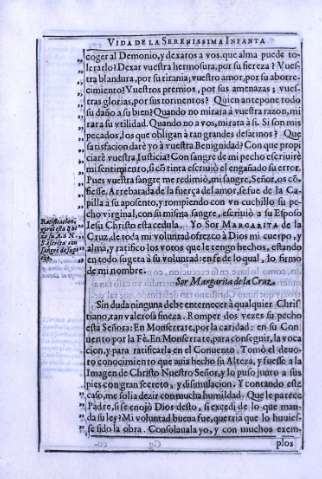 VIDA DE LA SERENISSIMA INFANTA
coger al Demonio, y dexaros a vos, que alma puede to-
lerarlo? Dexar vuestra hermosura, por su fiereza? Vues-
tra blandura, por su tirania; vuestro amor, por su aborre-
cimiento? Vuestros premios, por sus amenazas; vues-
tras glorias, por sus tormentos? Quien antepone todo
su daño a su bien? Quando no mirara à vuestra razon, mi-
rara su vtilidad. Quando no a vos, mirara à si. Si son mis
pecados, los que obligan à tan grandes desatinos? Que
satisfacion darè yo à vuestra Benignidad? Con que prop-
ciarè vuestra Justicia? Con sangre de mi pecho escriuirè
mi sentimiento, si cõ tinta escriuiò el engañado su error.
Pues vuestra sangre me redimiò, mi sangre, Señor, os cõ-
fiesse. Arrebatada de la fuerça del amor, se fue de la Ca-
pilla à su aposento, y rompiendo con vn cuchillo su pe-
cho virginal, con su misma sangre, escriuiò a su Esposo
Jesu Christo esta cedula. Yo Sor MARGARITA de la
Cruz, de toda mi voluntad ofrezco à Dios mi cuerpo, y
alma, y ratifico los votos que le tengo hechos, estando
en todo sugeta à su voluntad: en fe de lo qual, lo firmo
de mi nombre.
Sor Margarita de la Cruz.
Sin duda ninguna debe enternecer à qualquier Christi
tiano, tan valerosa fineza. Romper dos vezes su pecho
esta Señora: En Monserrate, por la caridad: en su Con
uento por la Fè. En Monserrate, para conseguir, la voca
cion, y para ratificarla en el Conuento. Tomò el deuo-
to conocimiento que auia hecho su Alteza, y fuesse a la
Imagen de Christo Nuestro Señor, y lo puso junto a sus
pies con gran secreto, y disimulacion. Y contando este
caso, me solia dezir con mucha humildad. Que le parece
Padre, si se enojò Dios desto, si excedi de lo que man-
da su ley? Mi voluntad buena fue, querria que lo huuies-
se sido la obra. Consolauala yo, y con muchos exem-
plos
Ratificacion,
escrita con
sangre de su pe
cho.